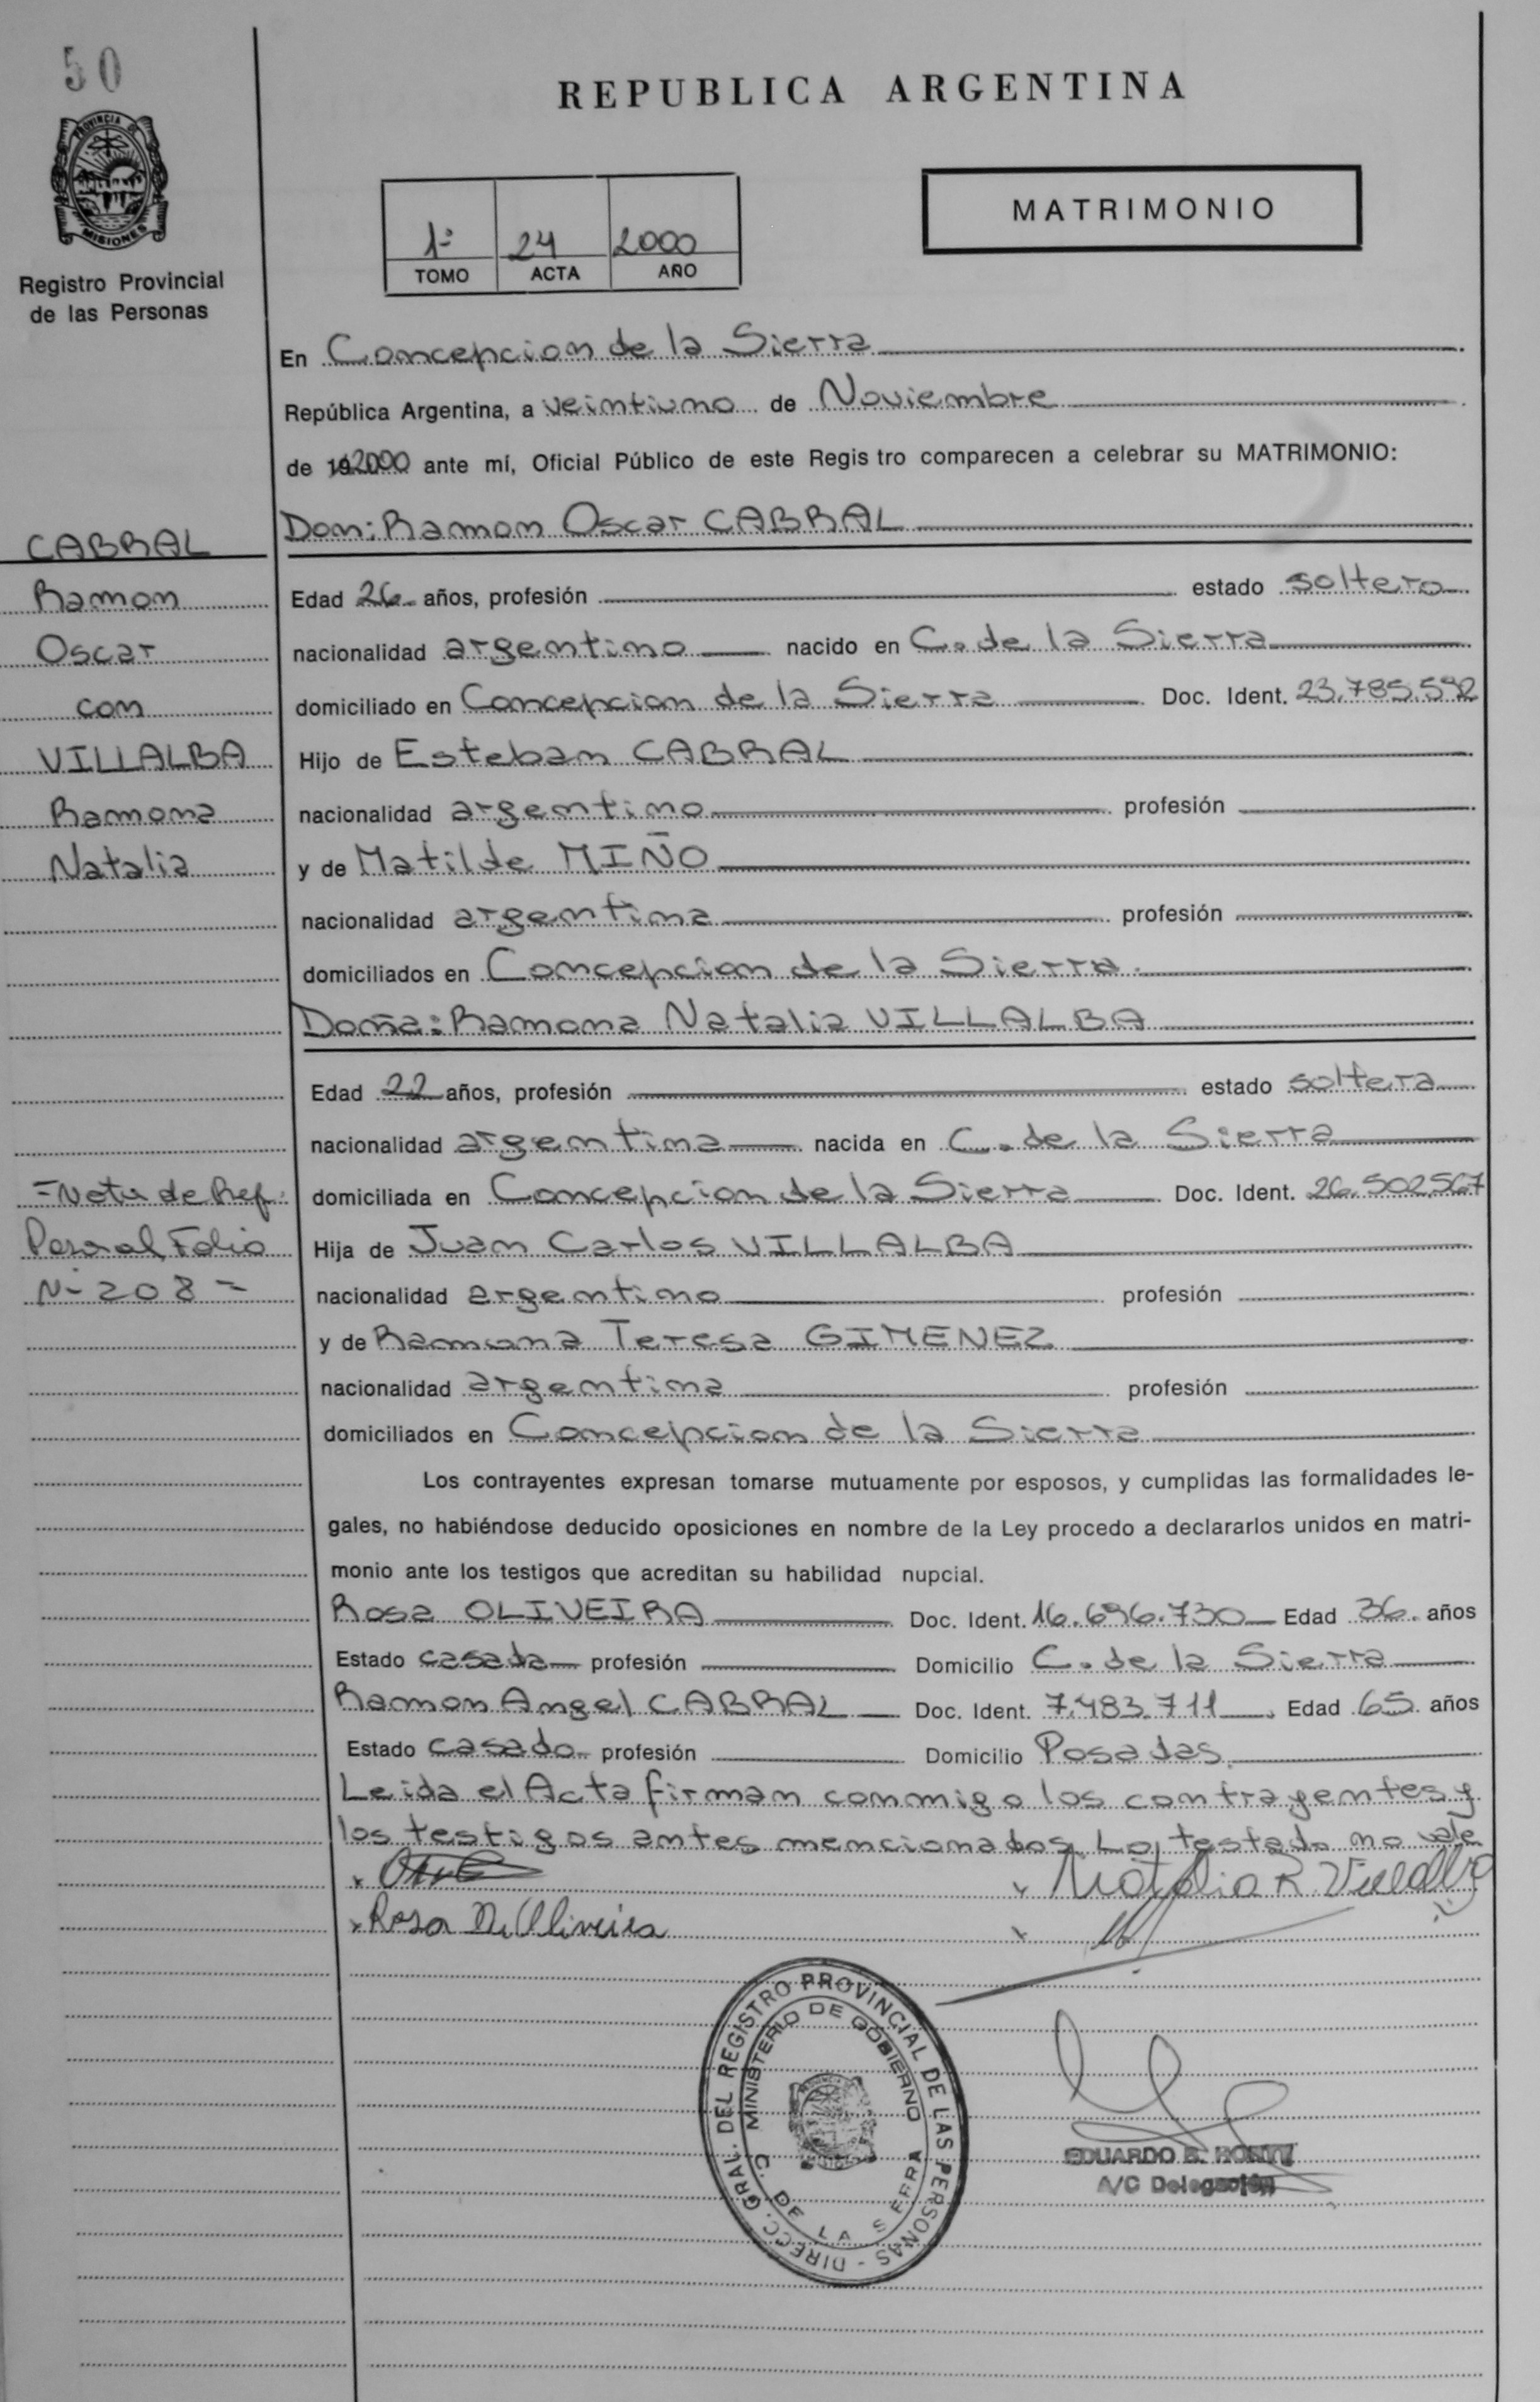 50
PROVINCIA DE
MISIONES
Registro Provincial
de las Personas
REPUBLICA ARGENTINA
MATRIMONIO
1º 24 2000
TOMO ACTA AÑO
En Concepcion de la Sierra
República Argentina, a veintiuno de Noviembre
de 192000 ante mí, Oficial Público de este Regis tro comparecen a celebrar su MATRIMONIO:
Don: Ramon Oscar CABRAL
CABRAL
Ramon
Oscar
con
VILLALBA
Ramona
Natalia
Edad 26 años, profesión estado soltero
nacionalidad argentino nacido en C. de la Sierra
domiciliado en Concepcion de la Sierra Doc. Ident. 23.785.592
Hijo de Esteban CABRAL
nacionalidad argentino profesión
y de Matilde MIÑO
nacionalidad argentina profesión
domiciliados en Concepcion de la Sierra.
Doña: Ramona Natalia VILLALBA
Edad 22 años, profesión estado soltera
nacionalidad argentina nacida en C. de la Sierra
domiciliada en Concepcion de la Sierra Doc. Ident. 26.502.567
Hija de Juan Carlos VILLALBA
nacionalidad argentino profesión
y de Ramona Teresa GIMENEZ
nacionalidad argentina profesión
domiciliados en Concepcion de la Sierra
=Nota de Ref:
Folio
Nº 208=
Los contrayentes expresan tomarse mutuamente por esposos, y cumplidas las formalidades le-
gales, no habiéndose deducido oposiciones en nombre de la Ley procedo a declararlos unidos en matri-
monio ante los testigos que acreditan su habilidad nupcial.
Rosa OLIVEIRA Doc. Ident. 16.696.730 Edad 36. años
Estado casada profesión Domicilio C. de la Sierra
Ramon Angel CABRAL Doc. Ident. 7.483.711 Edad 65 años
Estado casado profesión Domicilio Posadas
Leida el Acta firman conmigo los contrayentes y
los testigos antes mencionados. Lo testado no vale
Natalia R. Villalba
Rosa Oliveira
DIRECC. GRAL. DEL REGISTRO PROVINCIAL DE LAS PERSONAS -
MINISTERIO DE GOBIERNO
C. DE LA SIERRA
EDUARDO
A/C Delegación